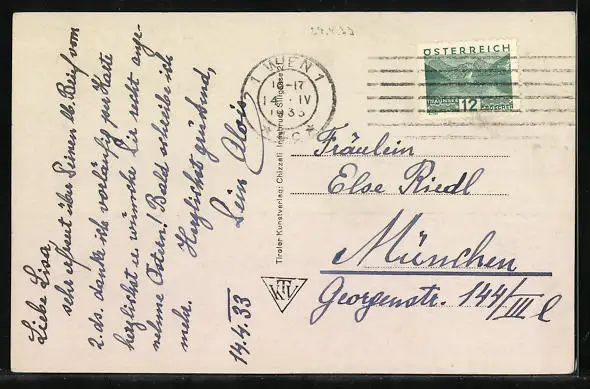 14.4.33
Liebe Lina,
sehr erfreut über Deinen lb. Brief vom
2. ds. danke ich vorläufig per Karte
herzlichst u. wünsche Dir recht ange-
nehme Ostern! Bald schreibe ich
mehr. Herzlichst grüssend,
Dein Alois
14.4.33
Tiroler Kunstverlag: Chizzali Innsbruck, Sillgasse
KTV
1 WIEN 1
16-17
14. IV
33
ÖSTERREICH
12
GROSCHEN
Fräulein
Else Riedl
München
Georgenstr. 144/III l